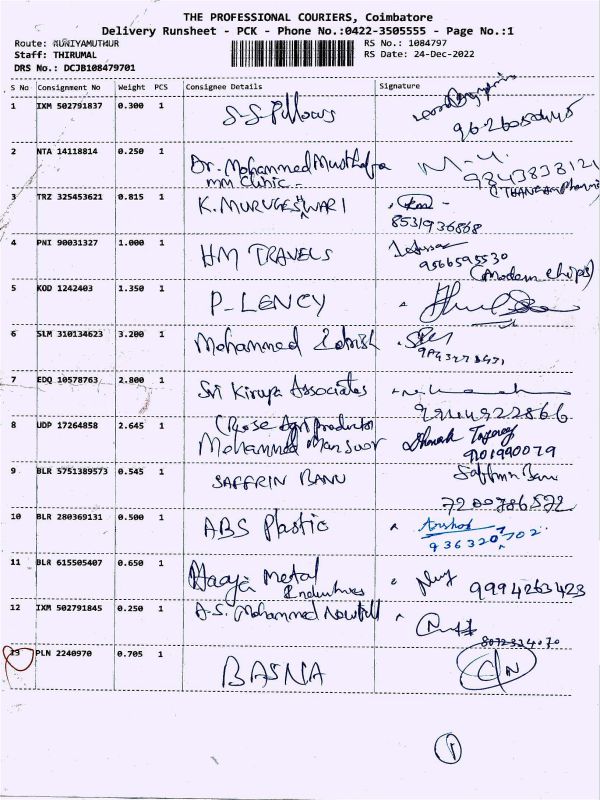 THE PROFESSIONAL COURIERS, Coimbatore
Delivery Runsheet - PCK - Phone No.:0422-3505555 - Page No.:1
Route: MUNIYAMUTHUR
RS No.: 1084797
Staff: THIRUMAL
RS Date: 24-Dec-2022
DRS No.: DCJB108479701
S No Consignment No Weight PCS Consignee Details Signature
1 IXM 502791837 0.300 1 S-S-Pillows
2 NTA 14118814 0.250 1 Dr. Mohammed Musthafa M-4.
mm clinic - 9843838121
3 TRZ 325453621 0.815 1 K. MURUGESHWARI
8531936868
4 PNI 90031327 1.000 1 HM TRAVELS
9566595530
(Modern chips)
5 KOD 1242403 1.350 1 P-LENCY
6 SLM 310134623 3.200 1 Mohammed
7 EDQ 10578763 2.800 1 Sri Kirupa Associates
8 UDP 17264858 2.645 1 (Rose Agri Productor
Mohammed Mansoor
9 BLR 5751389573 0.545 1 SAFFRIN BANU Saffrin Banu
7200786572
10 BLR 280369131 0.500 1 ABS Plastic Arshad
11 BLR 615505407 0.650 1 Haaja Metal
Industries 9994263423
12 IXM 502791845 0.250 1 A-S. Mohammed
8072334070
13 PLN 2240970 0.705 1 BASNA
1